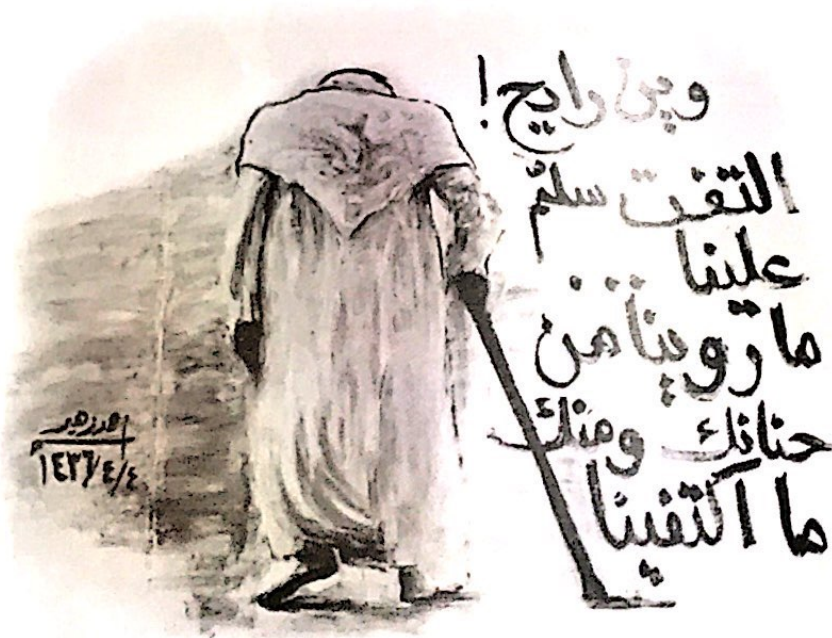 وين رايح!
التفت سلّم
علينا
ما روينا من
حنانك ومنك
ما اكتفينا
١٤٣٦/٤/٤